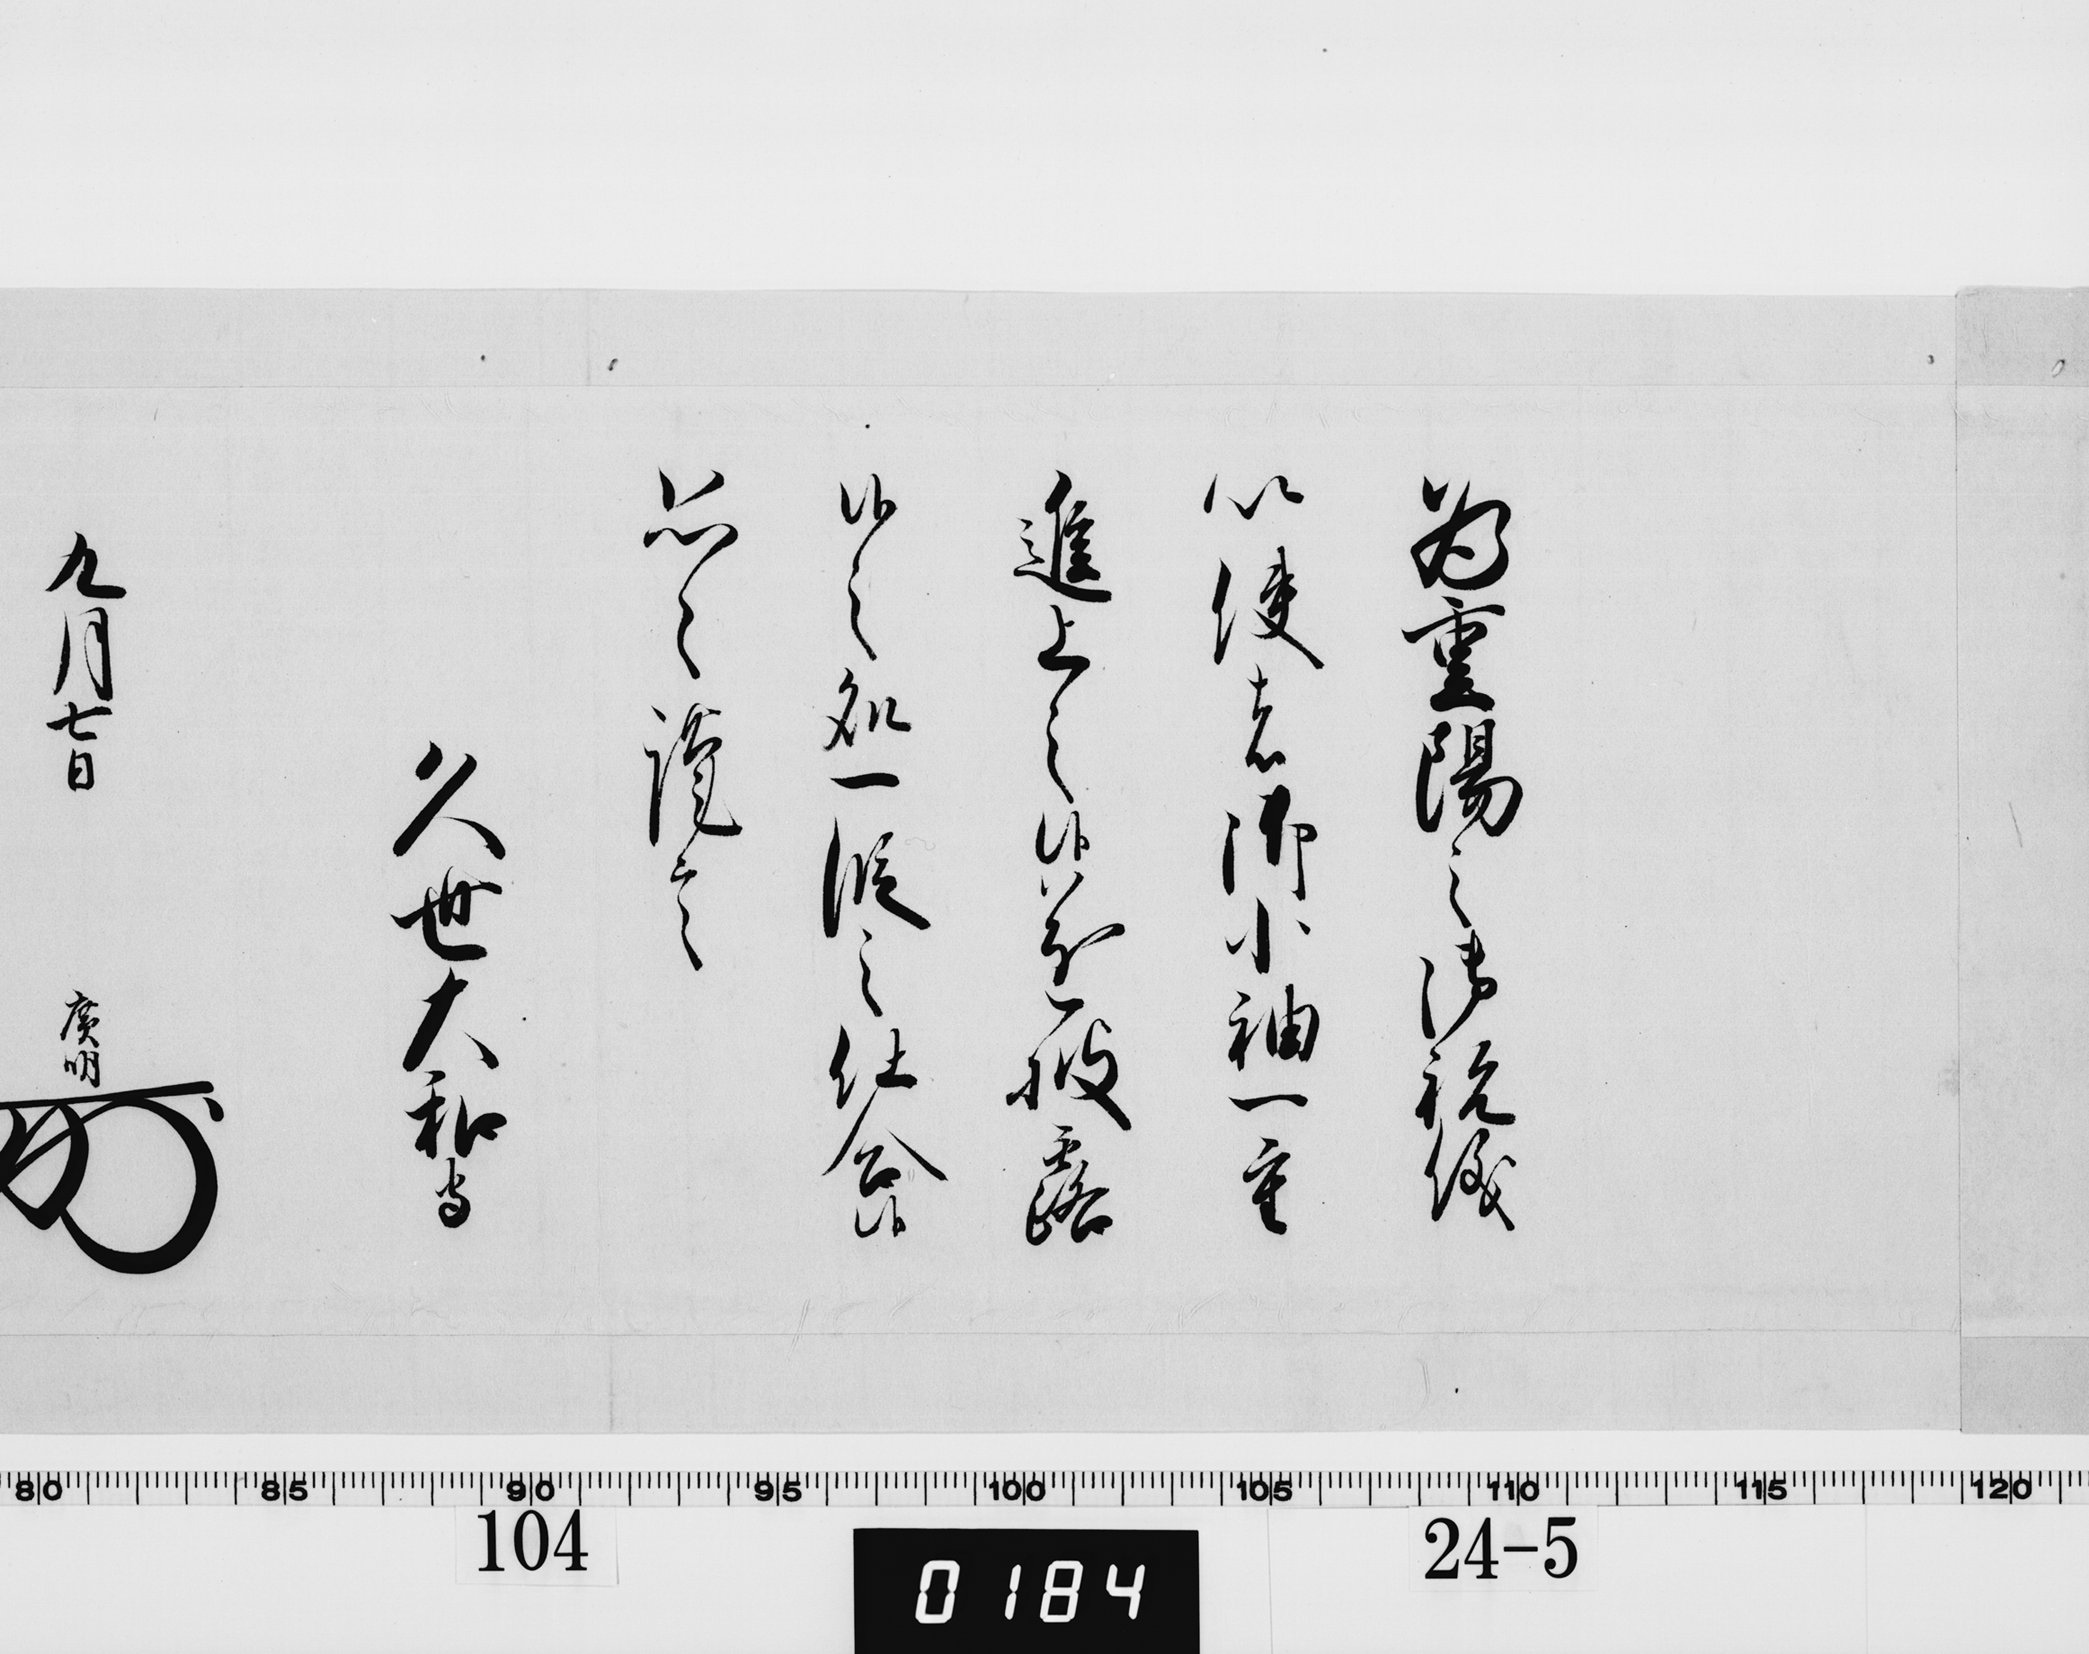 為重陽之御祝儀
以使者御小袖一重
進上之候遂披露
候之処一段之仕合候
恐々謹言
久世大和守
九月七日 廣明
80 85 90 95 100 105 110 115 120
104 0184 24-5